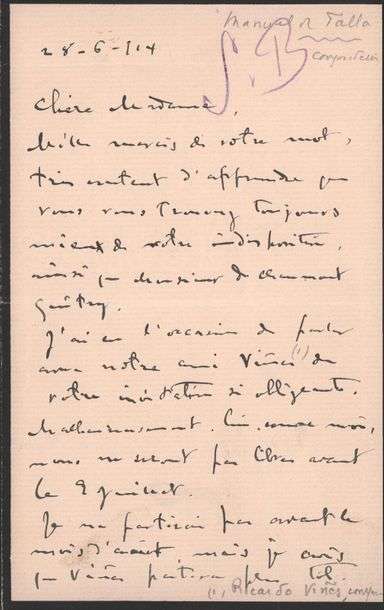 Manuel de Falla
compositeur
S.B
28-6-914
Chère Madame,
Mille mercis de votre mot,
très content d'apprendre que
vous vous trouvez toujours
mieux de votre indisposition,
ainsi que Monsieur de Chaumont
Guitry.
J'ai eu l'occasion de parler
avec notre ami Viñes (1) de
votre invitation si obligeante.
Malheureusement, lui, comme moi,
nous ne serons pas libres avant
le 8 juillet.
Je ne partirai pas avant le
mois d'août, mais je crois
que Viñes partira plus tôt.
(1) Ricardo Viñes,